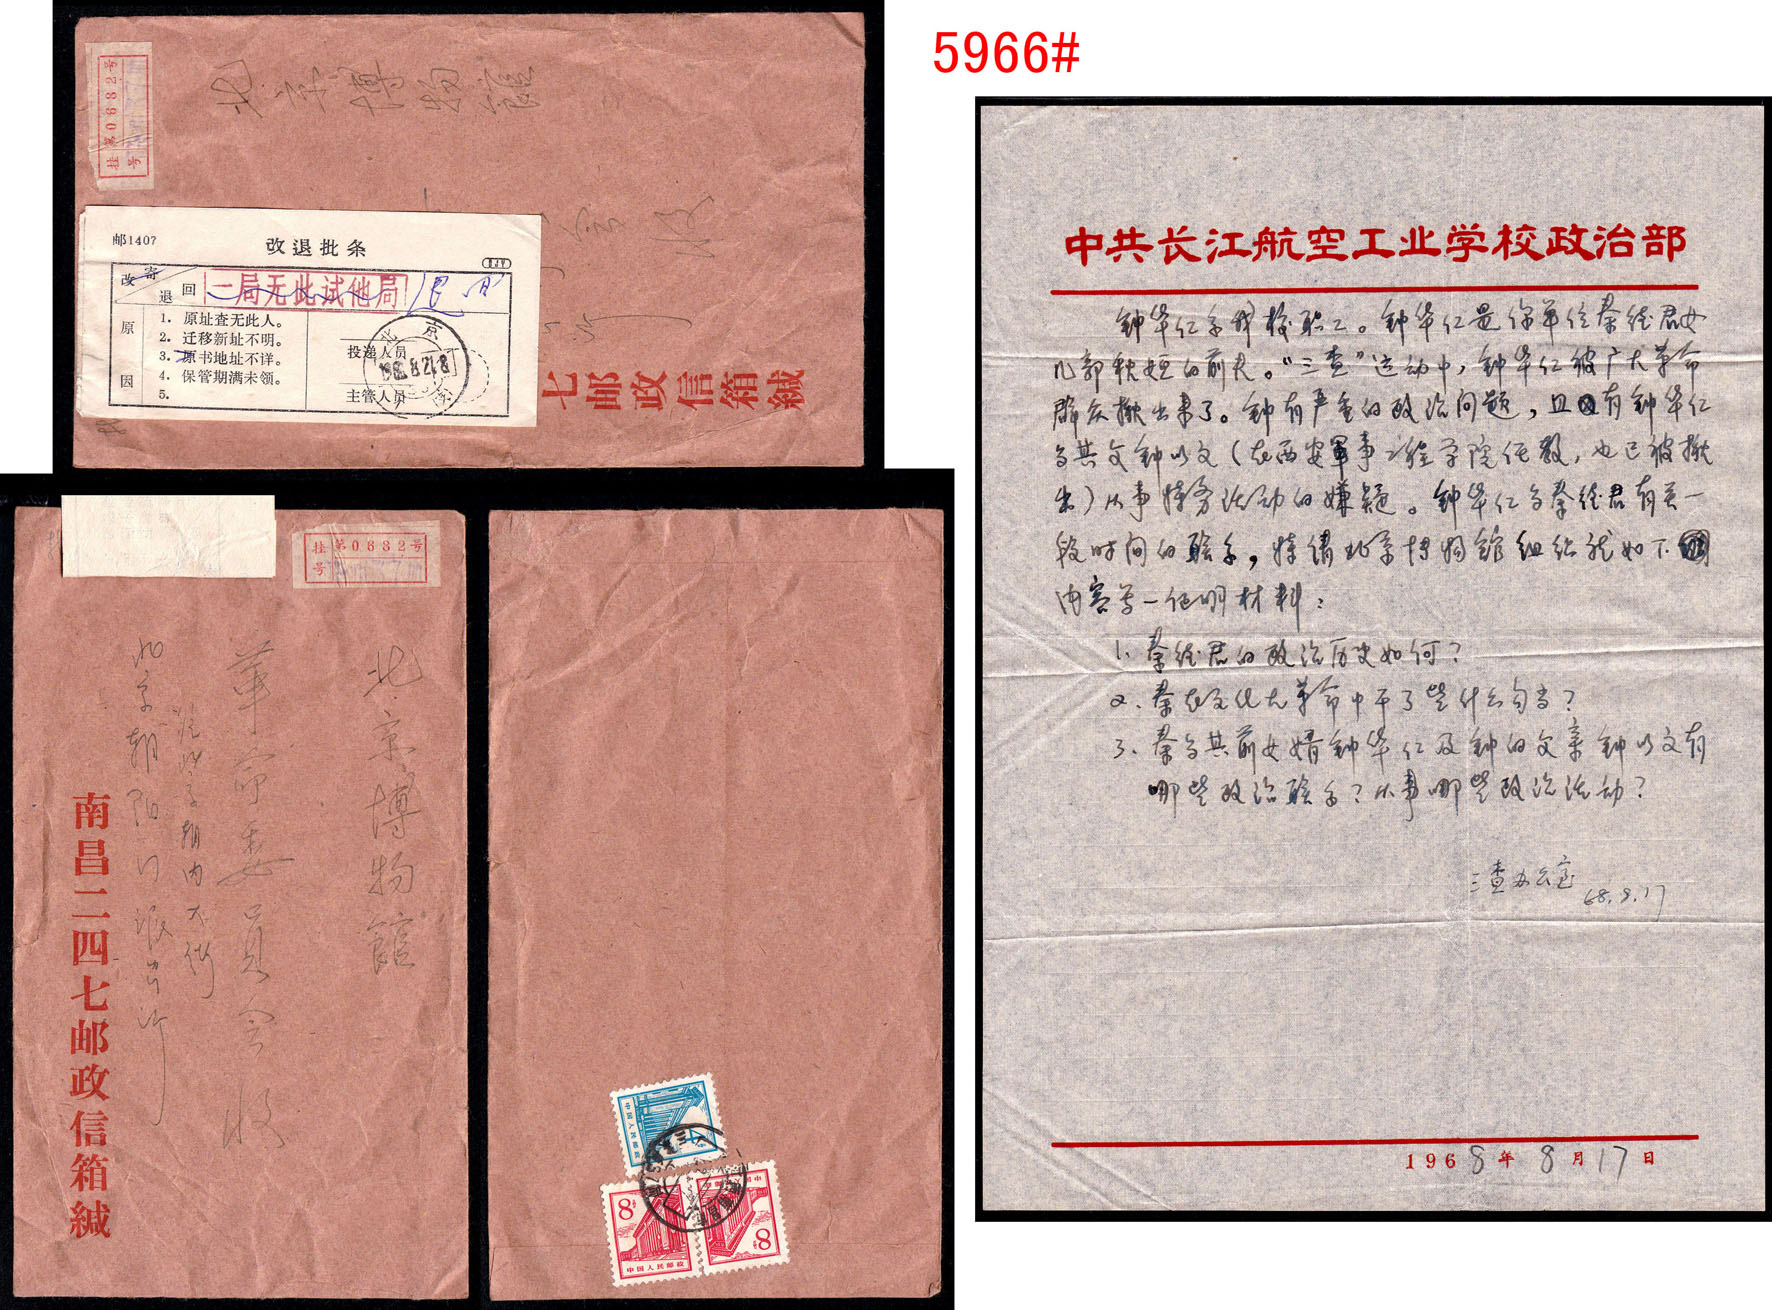 5966#
挂号
第0632号
北京博物館
收
邮1407
改退批条
改寄
退回
一局无此试他局
原因
1. 原址查无此人。
2. 迁移新址不明。
3. 原书地址不详。
4. 保管期满未领。
5.
投递人员
主管人员
北京
七邮政信箱缄
挂号
第0632号
北京博物館
革命委員会收
北京朝内大街
北京朝阳门派出所
南昌二四七邮政信箱缄
中国人民邮政
4
8
中国人民邮政
8
中共长江航空工业学校政治部
钟华仁系我校职工。钟华仁是你单位秦经君女
儿郭秋娅的前夫。“三查”运动中，钟华仁被广大革命
群众揪出来了。钟有严重的政治问题，且有钟华仁
与其父钟以文（在西安军事工程学院任教，也已被揪
出）从事特务活动的嫌疑。钟华仁与秦经君有关一
段时间的联系，特请北京博物館组织就如下
内容写一证明材料：
1. 秦经君的政治历史如何？
2. 秦在文化大革命中干了些什么勾当？
3. 秦与其前女婿钟华仁及钟的父亲钟以文有
哪些政治联系？从事哪些政治活动？
三查办公室
68.8.17
1968年8月17日